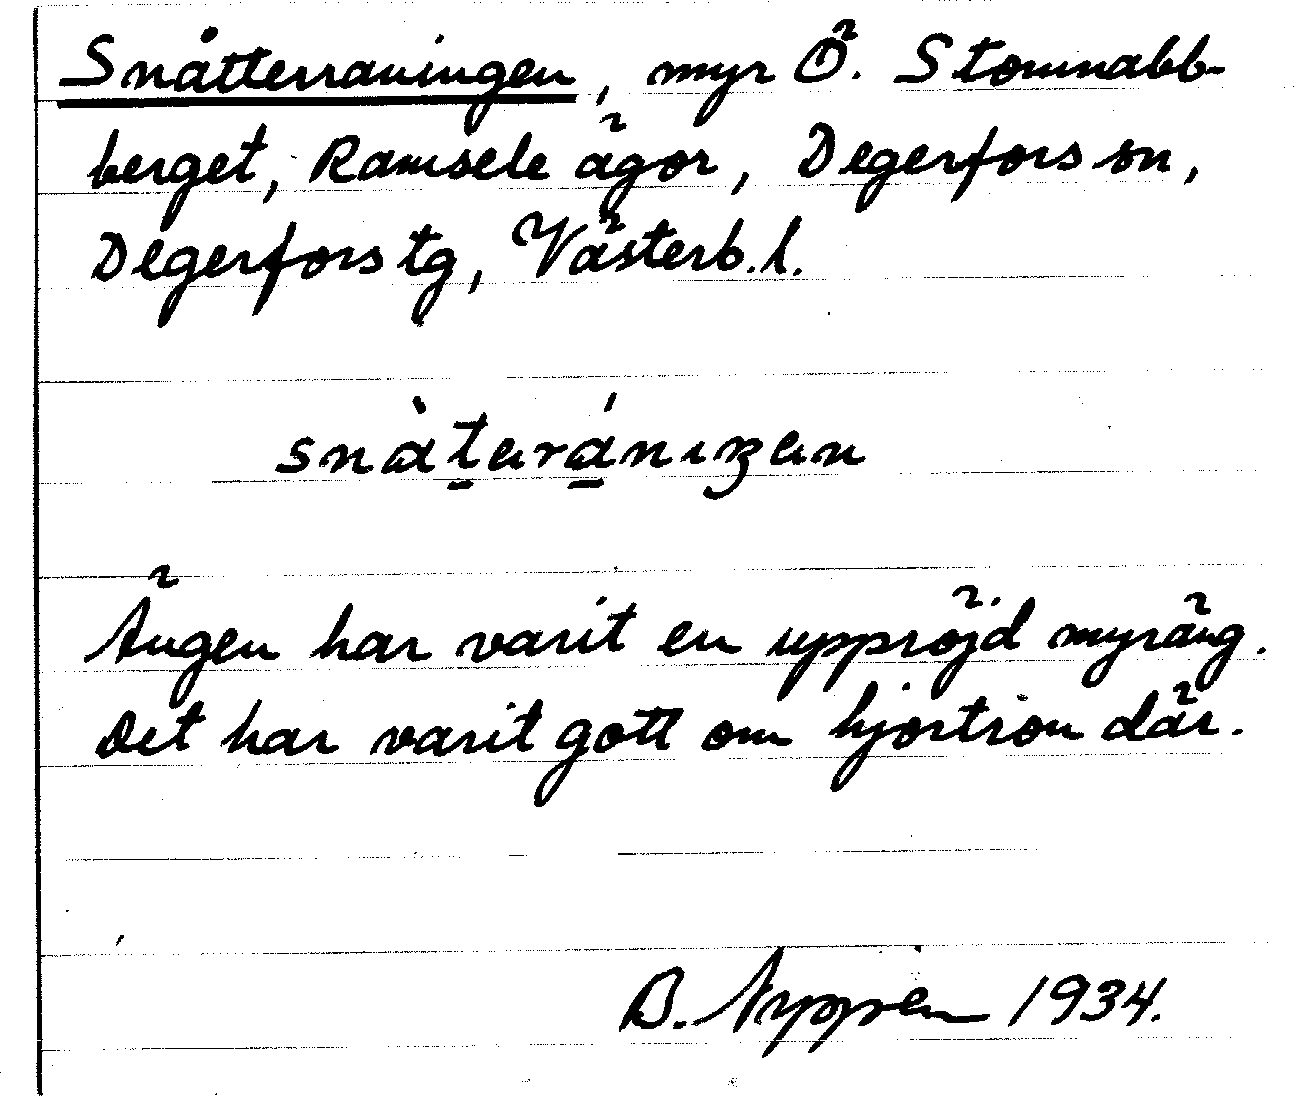 Snåtterraningen, myr Ö. Stomnabb-
berget, Ramsele ägor, Degerfors sn,
Degerfors tg, Västerb. l.
snàtərániŋən
Ängen har varit en uppröjd myräng.
Det har varit gott om hjortron där.
B. 1934.